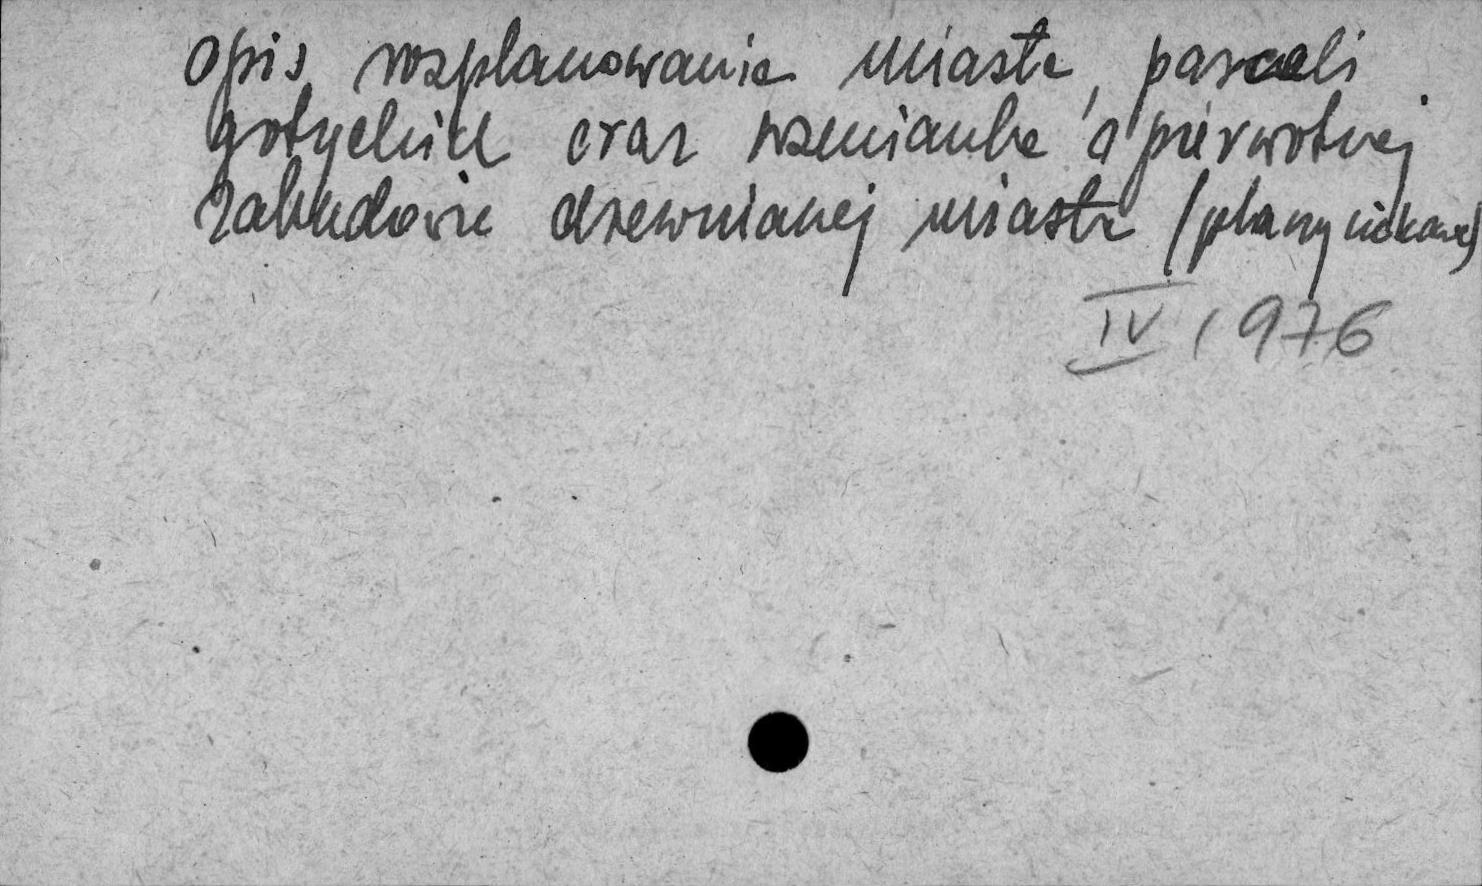 opis rozplanowania miasta, parceli
gotyckich oraz wzmianka o pierwotnej
zabudowie drewnianej miasta (plany
IV 1976